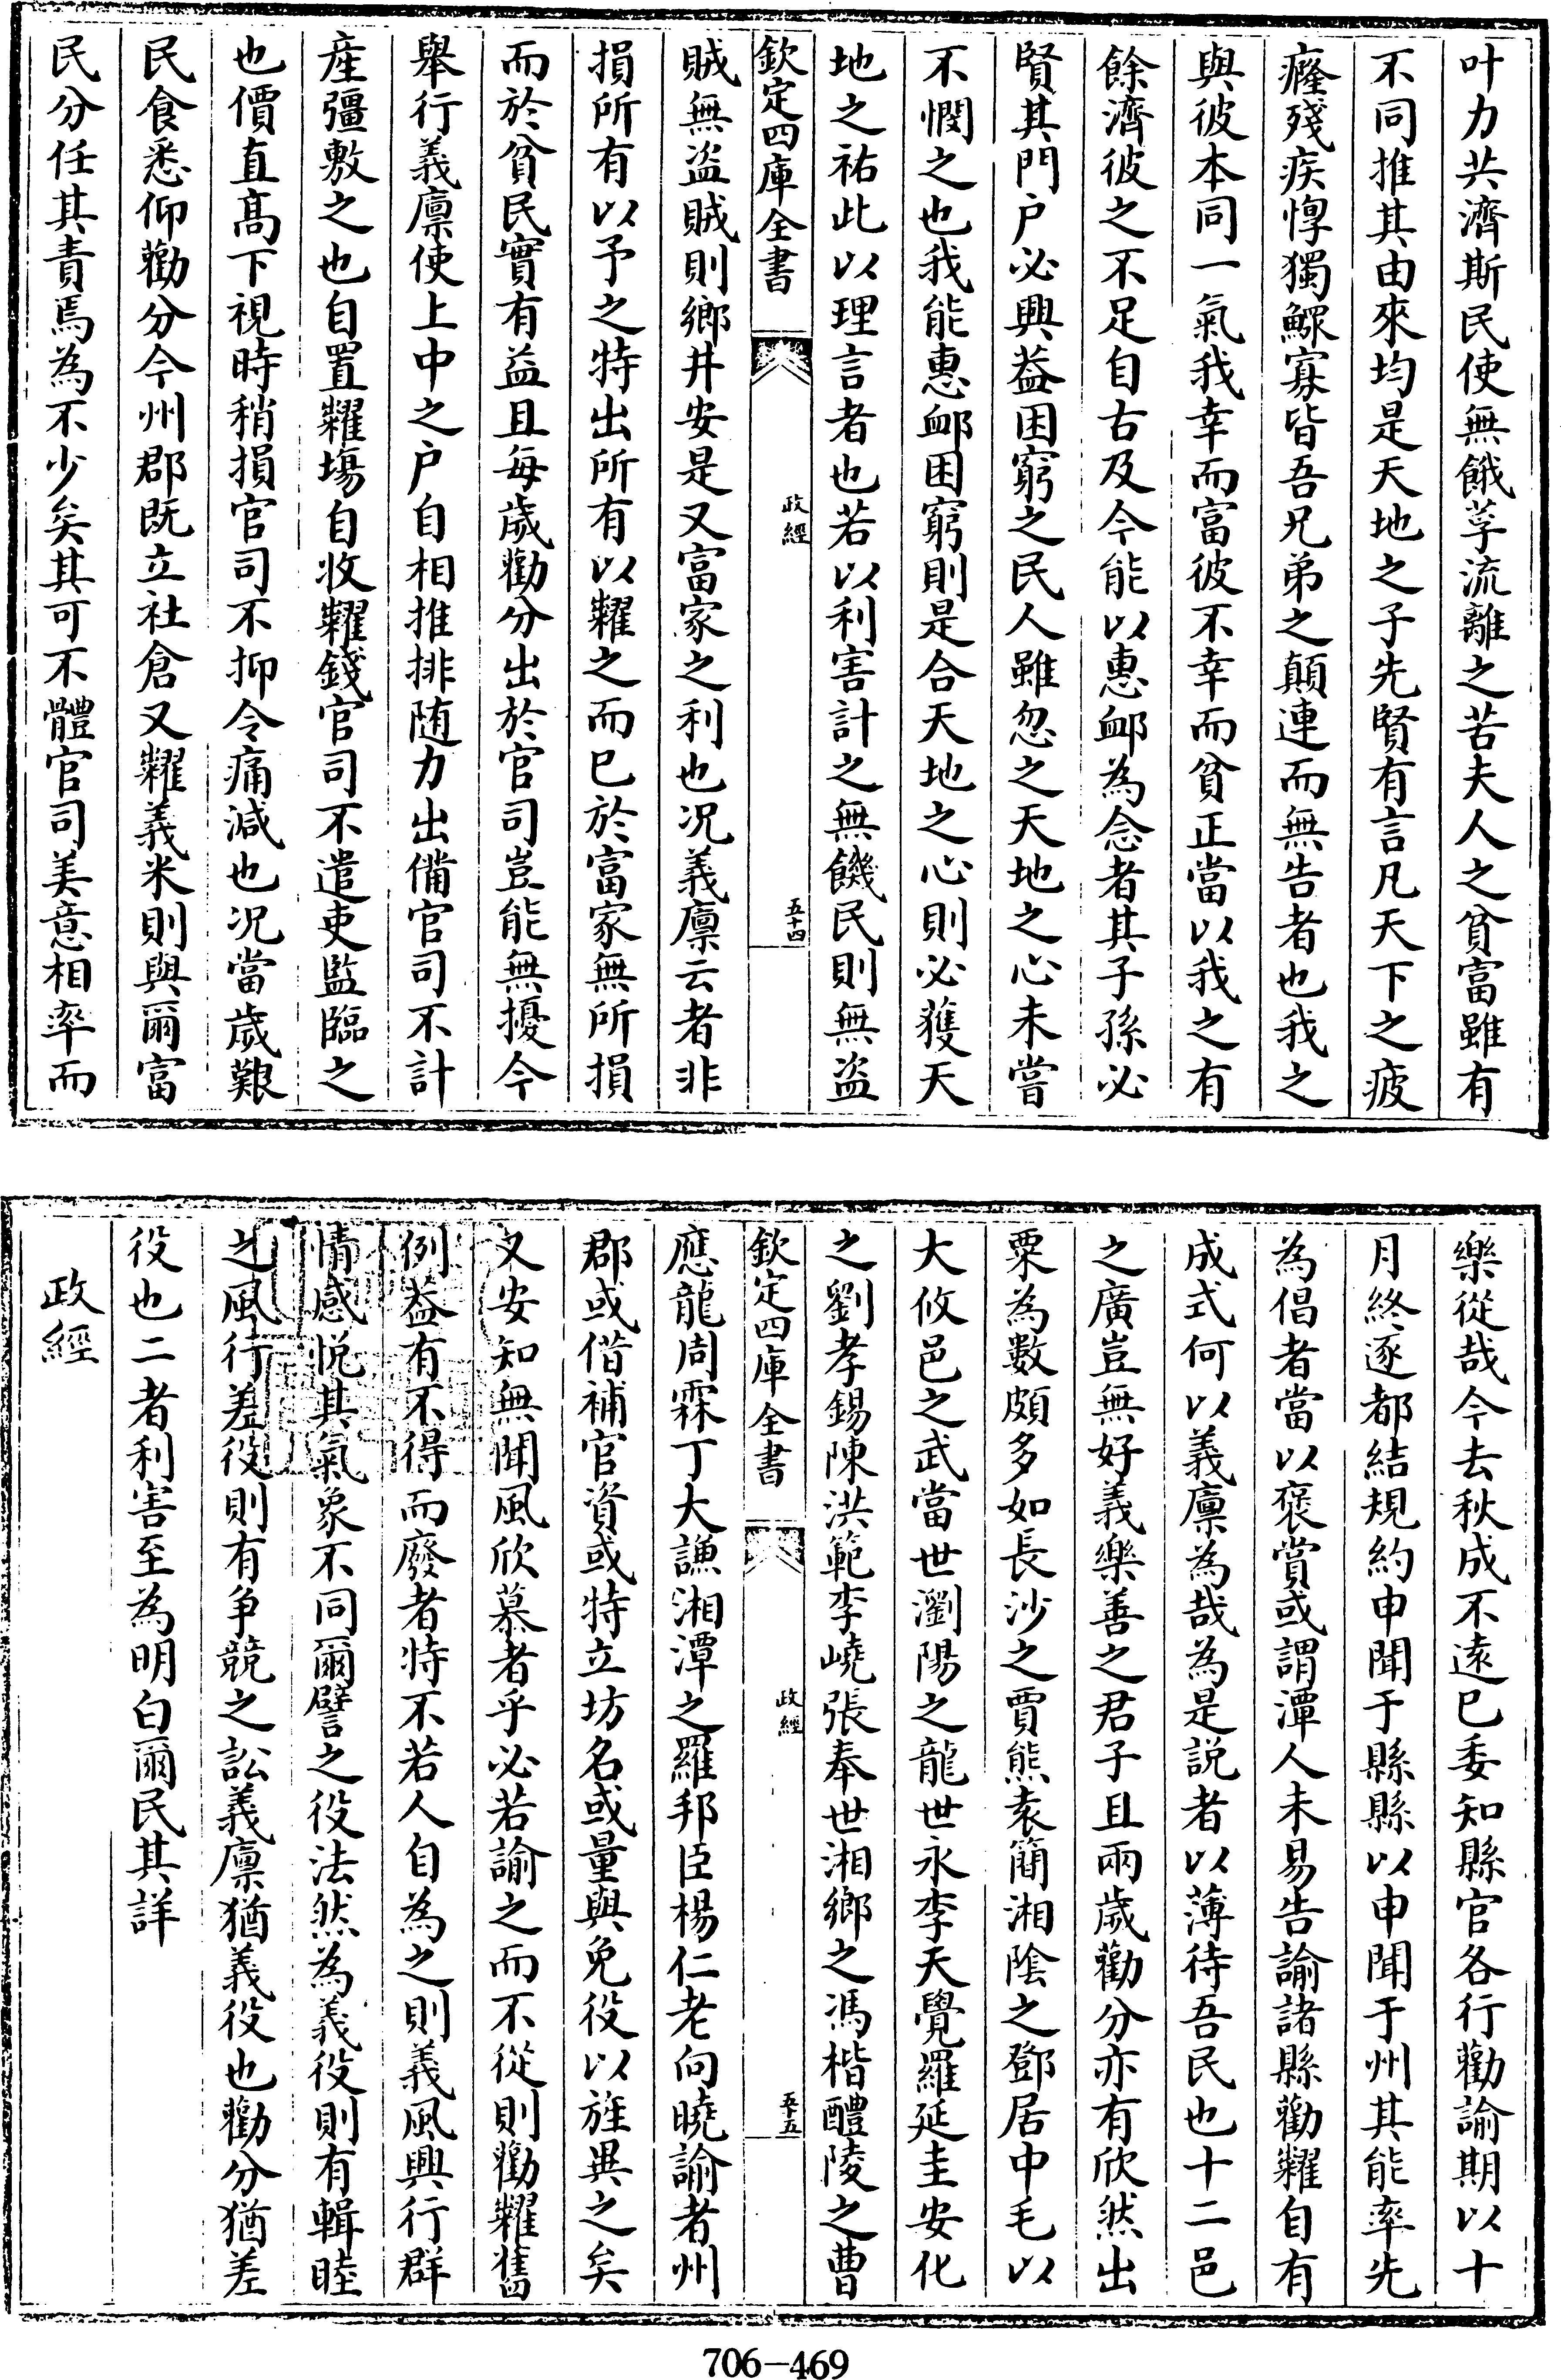 叶力共濟斯民使無餓莩流離之苦夫人之貧富雖有
不同推其由來均是天地之子先賢有言凡天下之疲
癃殘疾惸獨鰥寡皆吾兄弟之顛連而無告者也我之
與彼本同一氣我幸而富彼不幸而貧正當以我之有
餘濟彼之不足自古及今能以惠䘏為念者其子孫必
賢其門户必興葢困窮之民人雖忽之天地之心未嘗
不憫之也我能惠䘏困窮則是合天地之心則必獲天
地之祐此以理言者也若以利害計之無饑民則無盗
欽定四庫全書
政經
五十四
賊無盗賊則鄉井安是又富家之利也况義廪云者非
損所有以予之特出所有以糶之而已於富家無所損
而於貧民實有益且每歲勸分出於官司豈能無擾今
舉行義廪使上中之户自相推排随力出備官司不計
産彊敷之也自置糶塲自收糶錢官司不遣吏監臨之
也價直髙下視時稍損官司不抑令痛減也况當歲艱
民食悉仰勸分今州郡既立社倉又糶義米則與爾富
民分任其責焉為不少矣其可不體官司美意相率而
樂從哉今去秋成不遠已委知縣官各行勸諭期以十
月終逐都結規約申聞于縣縣以申聞于州其能率先
為倡者當以褒賞或謂潭人未易告諭諸縣勸糶自有
成式何以義廪為哉為是説者以薄待吾民也十二邑
之廣豈無好義樂善之君子且兩歲勸分亦有欣然出
粟為數頗多如長沙之賈熊袁簡湘隂之鄧居中毛以
大攸邑之武當世瀏陽之龍世永李天覺羅延圭安化
之劉孝錫陳洪範李嶢張奉世湘鄉之馮楷醴陵之曹
欽定四庫全書
政經
五十五
應龍周霖丁大謙湘潭之羅邦臣楊仁老向曉諭者州
郡或偕補官資或特立坊名或量與免役以旌異之矣
又安知無聞風欣慕者乎必若諭之而不從則勸糶舊
例葢有不得而廢者特不若人自為之則義風興行群
情感悦其氣象不同爾譬之役法然為義役則有輯睦
之風行差役則有爭競之訟義廪猶義役也勸分猶差
役也二者利害至為明白爾民其詳
政經
706-469